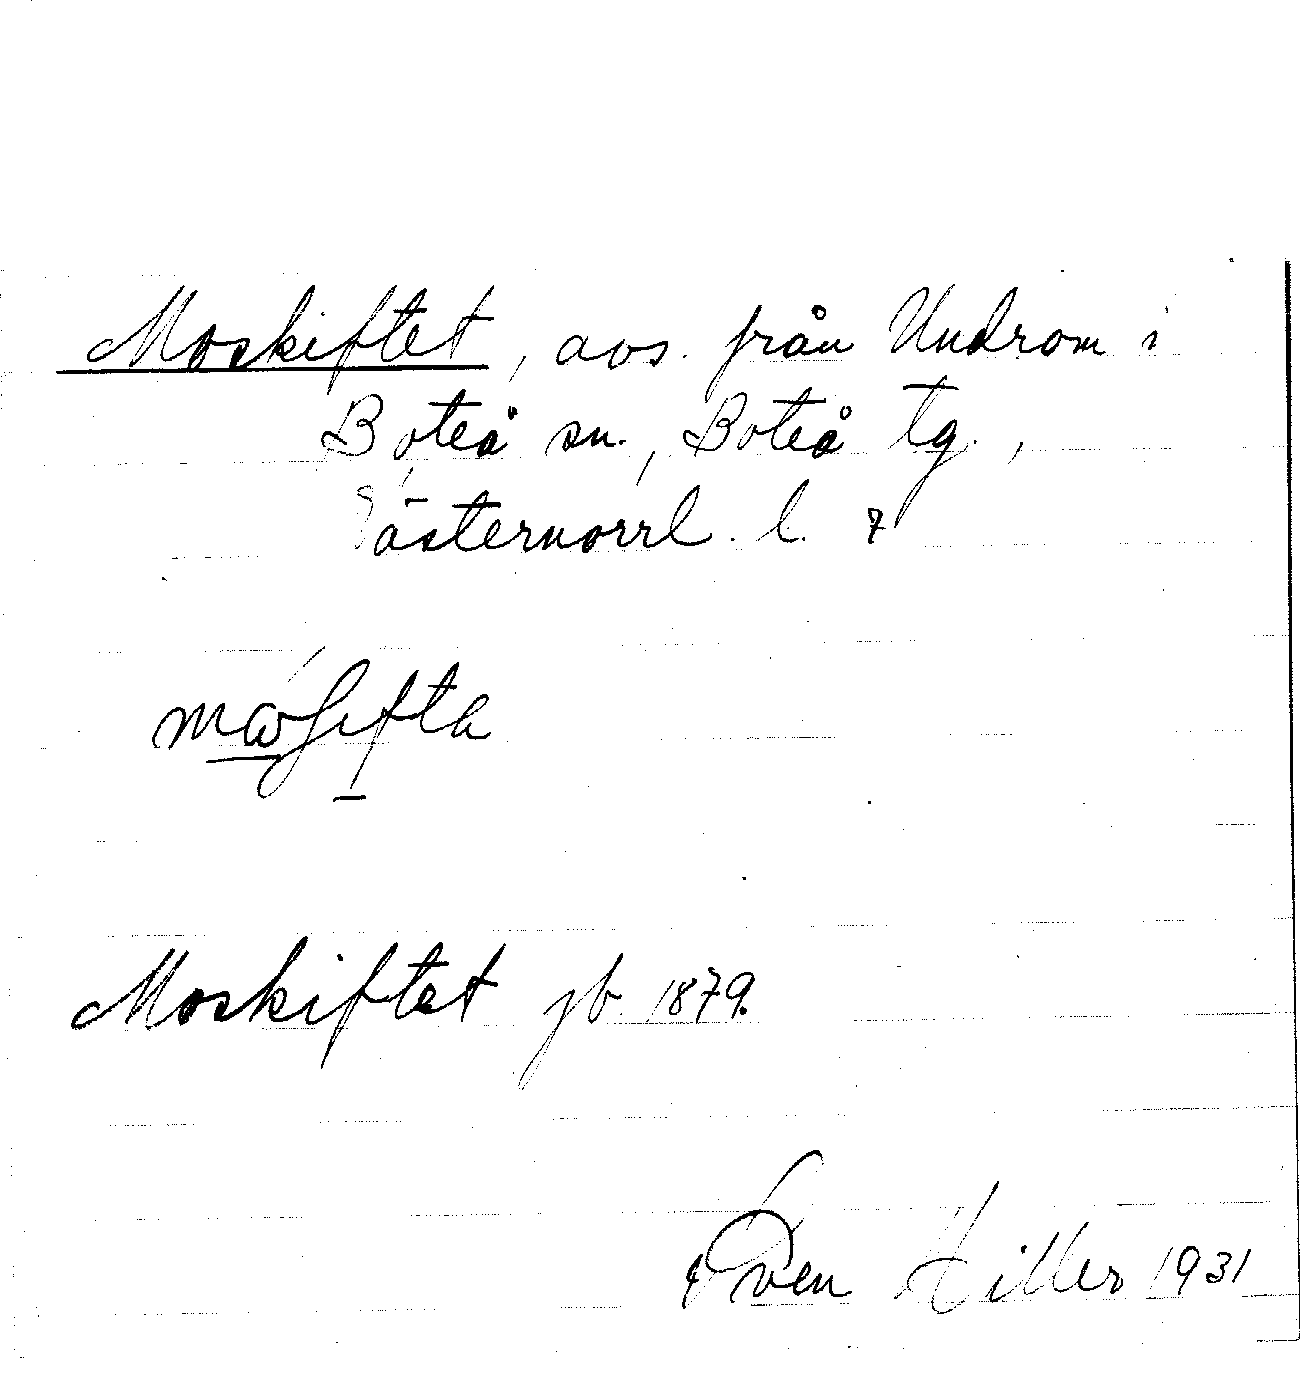 Moskiftet, avs. från Undrom i
Boteå sn., Boteå tg.,
Västernorrl. l. 7
Moskiftet jb 1879.
Sven Hiller 1931